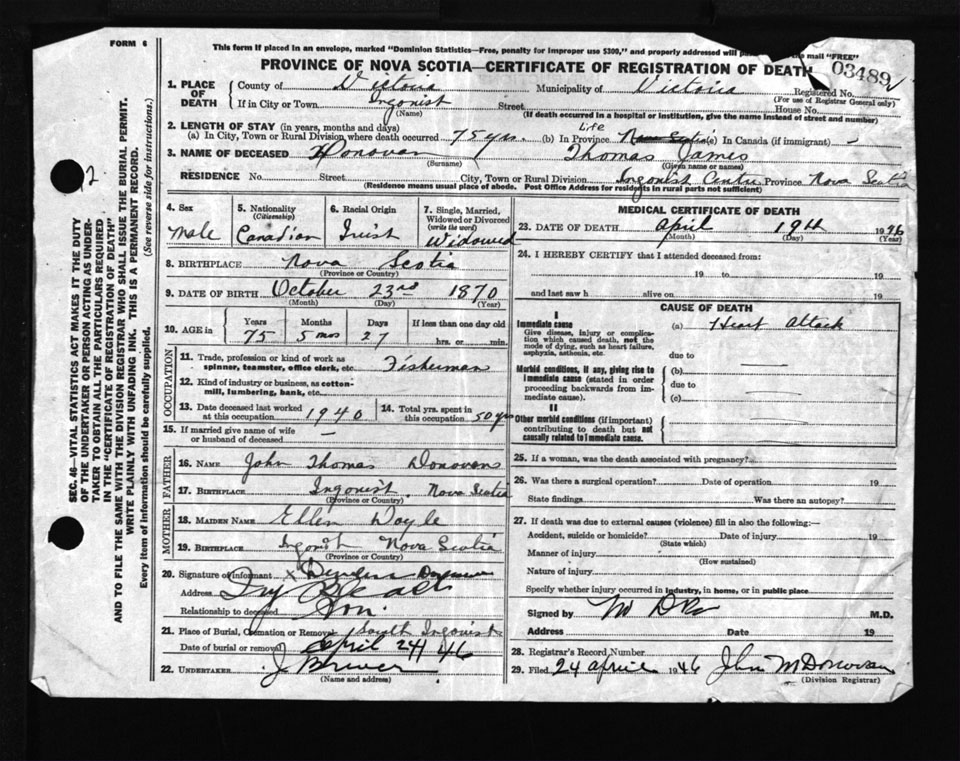 FORM 6
This form if placed in an envelope, marked "Dominion Statistics—Free, penalty for improper use $300," and properly addressed will mail "FREE"
PROVINCE OF NOVA SCOTIA—CERTIFICATE OF REGISTRATION OF DEATH
03489
Registered No.
(For use of Registrar General only)
1. PLACE OF DEATH
County of Victoria Municipality of Victoria
If in City or Town Ingonish Street House No.
(Name) (If death occurred in a hospital or institution, give the name instead of street and number)
2. LENGTH OF STAY (in years, months and days)
(a) In City, Town or Rural Division where death occurred 75 yrs. (b) In Province Life (c) In Canada (if immigrant) —
3. NAME OF DECEASED Donovan Thomas James
(Surname) (Given name or names)
RESIDENCE No. Street City, Town or Rural Division Ingonish Centre Province Nova Scotia
(Residence means usual place of abode. Post Office Address for residents in rural parts not sufficient)
4. Sex male
5. Nationality (Citizenship) Canadian
6. Racial Origin Irish
7. Single, Married, Widowed or Divorced (write the word) Widowed
8. BIRTHPLACE Nova Scotia
(Province or Country)
9. DATE OF BIRTH October 23rd 1870
(Month) (Day) (Year)
10. AGE in Years 75 Months 5 mos Days 27 If less than one day old hrs. or min.
OCCUPATION
11. Trade, profession or kind of work as spinner, teamster, office clerk, etc. Fisherman
12. Kind of industry or business, as cotton-mill, lumbering, bank, etc.
13. Date deceased last worked at this occupation 1940
14. Total yrs. spent in this occupation 50 yrs
15. If married give name of wife or husband of deceased —
FATHER
16. NAME John Thomas Donovan
17. BIRTHPLACE Ingonish, Nova Scotia
(Province or Country)
MOTHER
18. MAIDEN NAME Ellen Doyle
19. BIRTHPLACE Ingonish Nova Scotia
(Province or Country)
20. Signature of informant X
Address
Relationship to deceased Son.
21. Place of Burial, Cremation or Removal South Ingonish
Date of burial or removal April 24 46
22. UNDERTAKER J
(Name and address)
MEDICAL CERTIFICATE OF DEATH
23. DATE OF DEATH April 19th 1946
(Month) (Day) (Year)
24. I HEREBY CERTIFY that I attended deceased from:
19 to 19
and last saw h alive on 19
CAUSE OF DEATH
I
Immediate cause
Give disease, injury or complication which caused death, not the mode of dying, such as heart failure, asphyxia, asthenia, etc.
(a) Heart Attack
due to
Morbid conditions, if any, giving rise to immediate cause (stated in order proceeding backwards from immediate cause).
(b)
due to
(c)
II
Other morbid conditions (if important) contributing to death but not causally related to immediate cause.
25. If a woman, was the death associated with pregnancy?
26. Was there a surgical operation? Date of operation 19
State findings Was there an autopsy?
27. If death was due to external causes (violence) fill in also the following:—
Accident, suicide or homicide? Date of injury 19
(State which)
Manner of injury
(How sustained)
Nature of injury
Specify whether injury occurred in industry, in home, or in public place
Signed by M.D.
Address Date 19
28. Registrar's Record Number
29. Filed 24 April 1946 John M Donovan
(Division Registrar)
SEC. 46—VITAL STATISTICS ACT MAKES IT THE DUTY
OF THE UNDERTAKER OR PERSON ACTING AS UNDER-
TAKER TO OBTAIN ALL THE PARTICULARS REQUIRED
IN THE "CERTIFICATE OF REGISTRATION OF DEATH"
AND TO FILE THE SAME WITH THE DIVISION REGISTRAR WHO SHALL ISSUE THE BURIAL PERMIT.
WRITE PLAINLY WITH UNFADING INK. THIS IS A PERMANENT RECORD.
Every item of information should be carefully supplied. (See reverse side for instructions.)